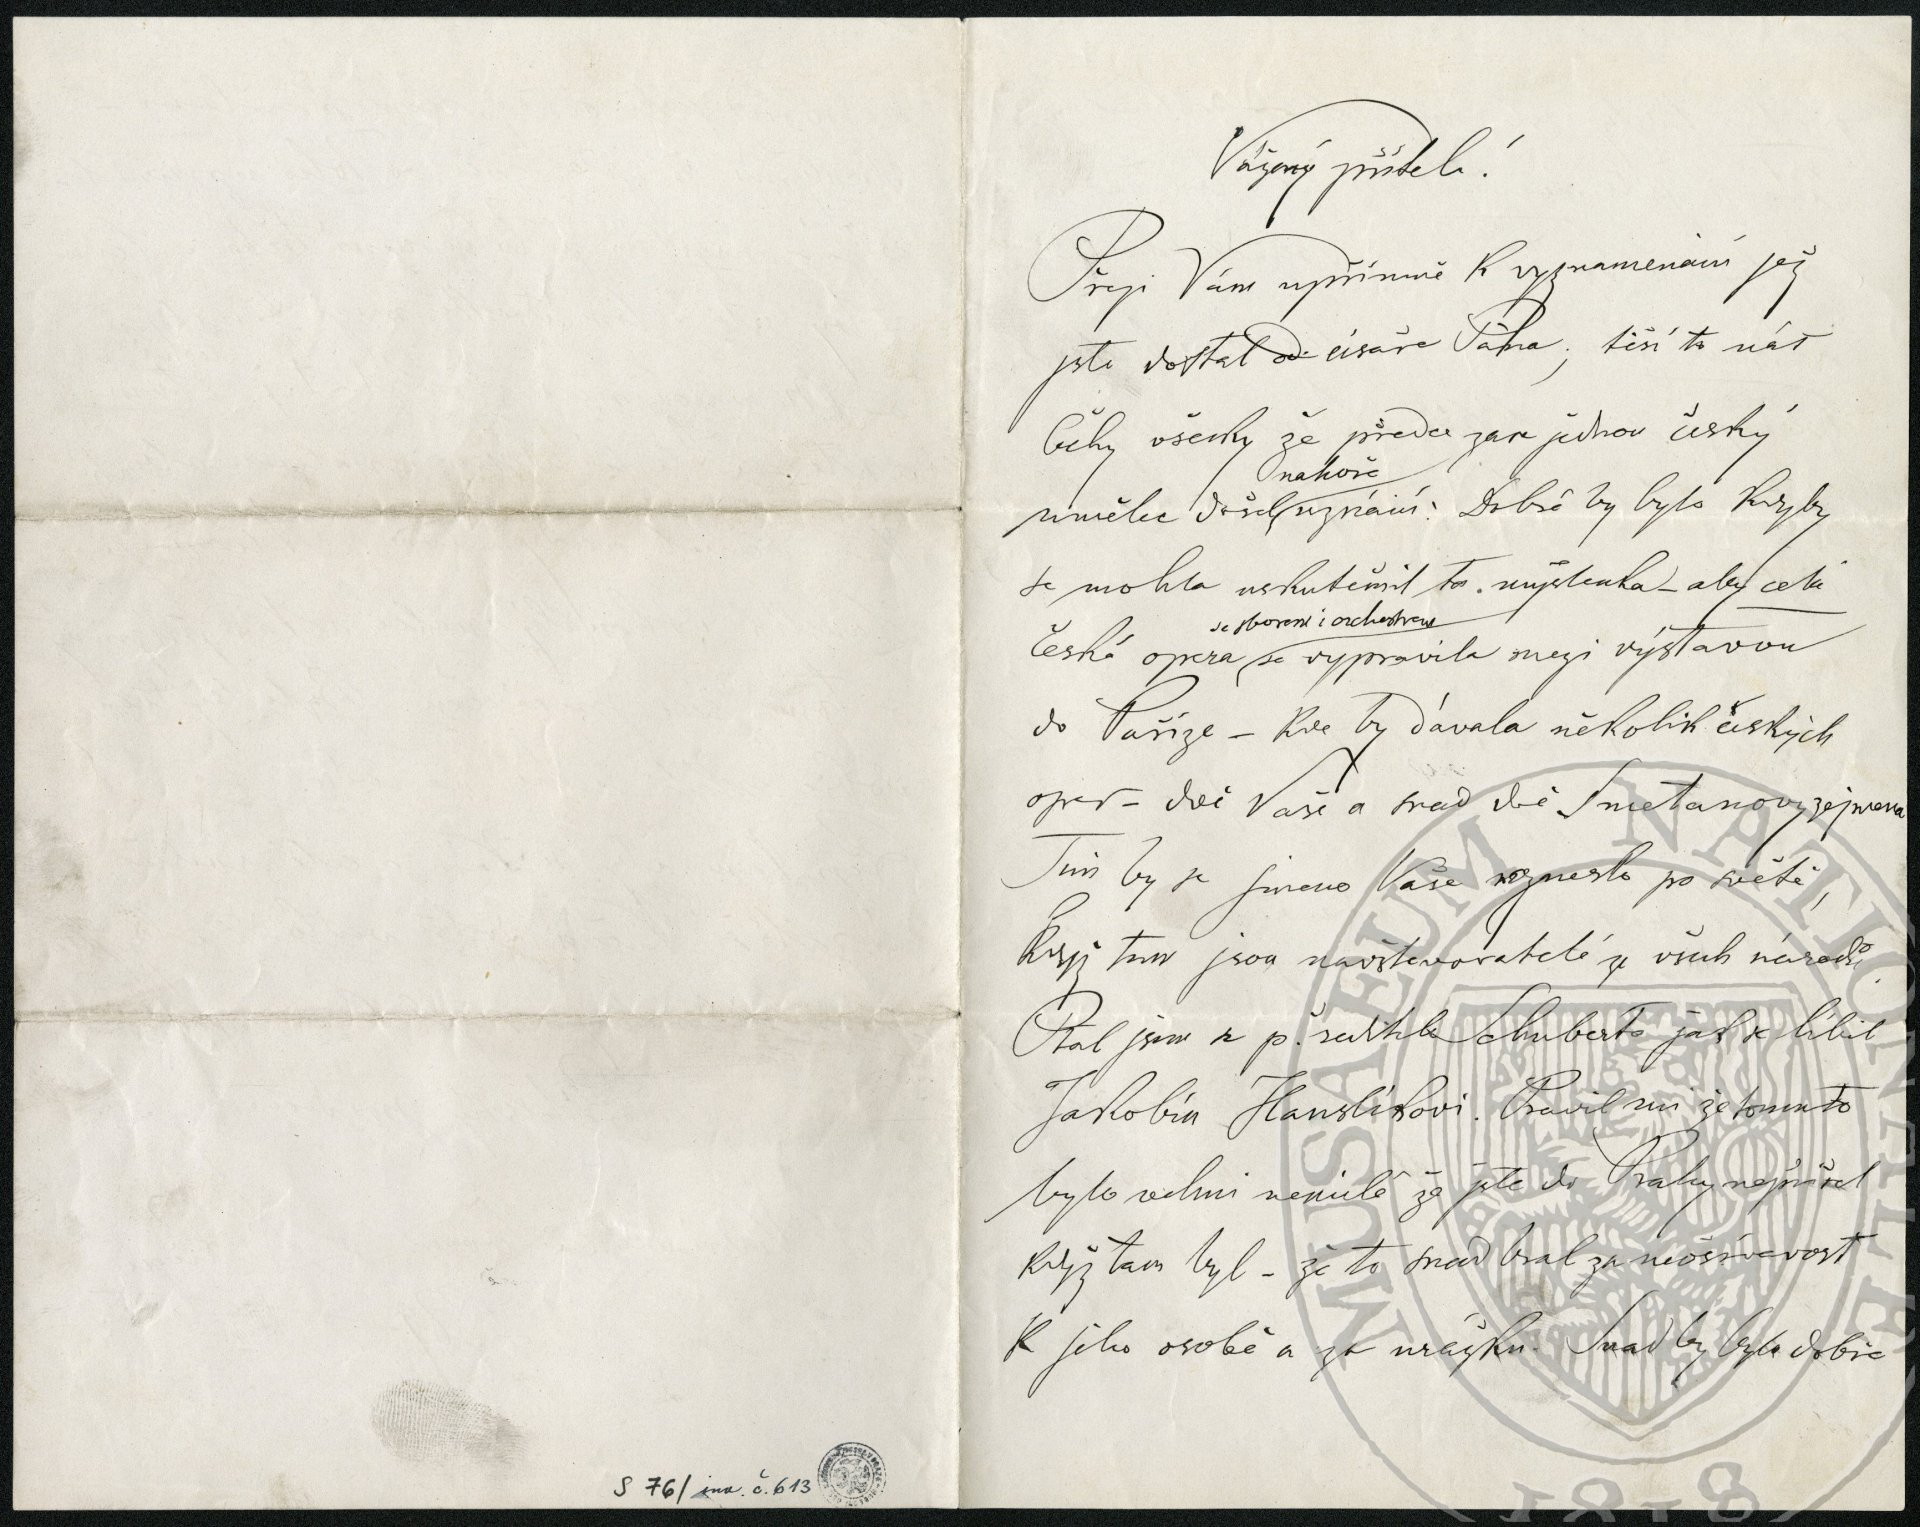 Vážený příteli!
Přeji Vám upřímně k vyznamenání jež
jste dostal od císaře Pána; těší to nás
Čechy všecky že předce zase jednou český
nahoře
umělec došel uznání: Dobré by bylo kdyby
se mohla uskutečnit ta myšlenka – aby celá
se sborem i orchestrem
česká opera se vypravila mezi výstavou
do Paříže – kde by dávala několik českých
oper – dvě Vaše a snad dvě Smetanovy zejmena
Tím by se jmeno Vaše rozneslo po světě,
když tam jsou navštevovatelé ze všech národů.
Ptal jsem se p. ředitele Schuberta jak se líbil
Jakobín Hanslíkovi. Pravil mi že tomuto
bylo velmi nemilé že jste do Prahy nepřišel
když tam byl – že to snad bral za neošívavost
k jeho osobě a za urážku. Snad by bylo dobře
S 76/ inv. č. 613
MUSAEUM NATIONALE
1818